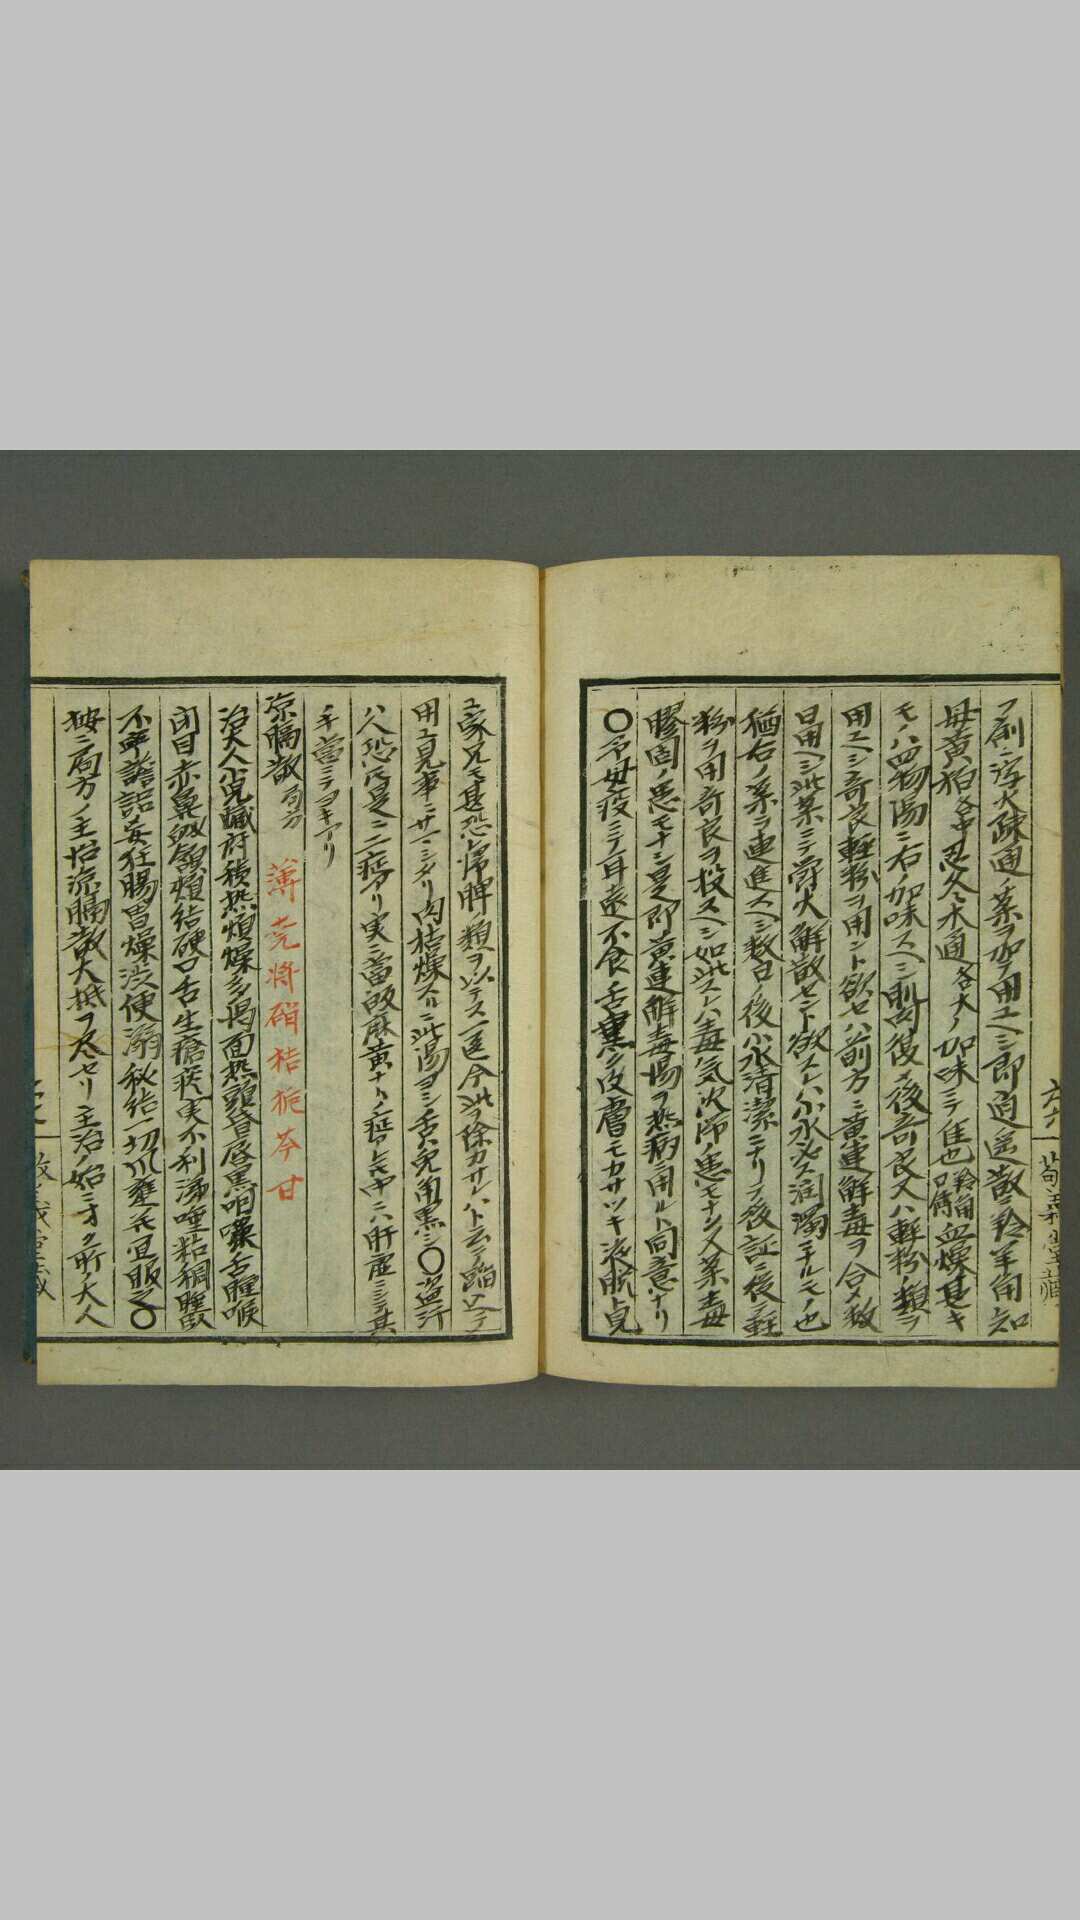 フ剤ニ瀉火疎通ノ薬ヲ加テ用ユヘシ即逍遥散ニ羚羊角知
母黄柏各中忍冬木通各大ノ加味ニテ佳也 羚角口傳 血燥甚キ
モノハ四物湯ニ右ノ加味スヘシ
用ユヘシ奇良軽粉ヲ用ント欲セハ前方ニ黄連解毒ヲ合メ数
日用ヘシ此薬ニテ欝火解散セント欲スレハ小水必ス涸濁ニナルモノ也
猶右ノ薬ヲ連進スヘシ数日ノ後小水清潔ニナリテ後証ニ後ヒ軽
粉ヲ用奇良ヲ投スヘシ如此スレハ毒気沈滞ノ患モナシ又薬毒
膠固ノ患モナシ是即黄連解毒湯ヲ熱病ニ用ルト同意ナリ
〇予毎疫ニテ耳遠不食舌黒ク皮膚モカサツキ液脱ノ
ユ家兄モ甚恐レ帰脾ノ類ヲ以テス一医今此ヲ除カサレハ
用ユ見事ニサマシタリ肉枯燥スルニ此湯ヨシ舌ハ兔角黒シ〇盗汗
ハ人恐ル是ニ二症アリ実ニ當皈麻黄ナトノ症アレ𪜈中ニハ肝虚ニシテ其
手當ニテヨキアリ
涼膈散 局方 薄 荒 将 硝 桔 梔 芩 甘
治大人小児臓腑積熱煩燥多渇面熱頭昏唇黒咽嚥舌腫喉
閉目赤鼻衂頷頬結硬口舌生瘡痰実不利涕唾粘稠睡臥
不寧譫語妄狂腸胃燥渋便溺秘結一切風壅并宜服之〇
按ニ局方ノ主治涼膈散大抵ヲ尽セリ主治ノ始ニオク所ノ大人